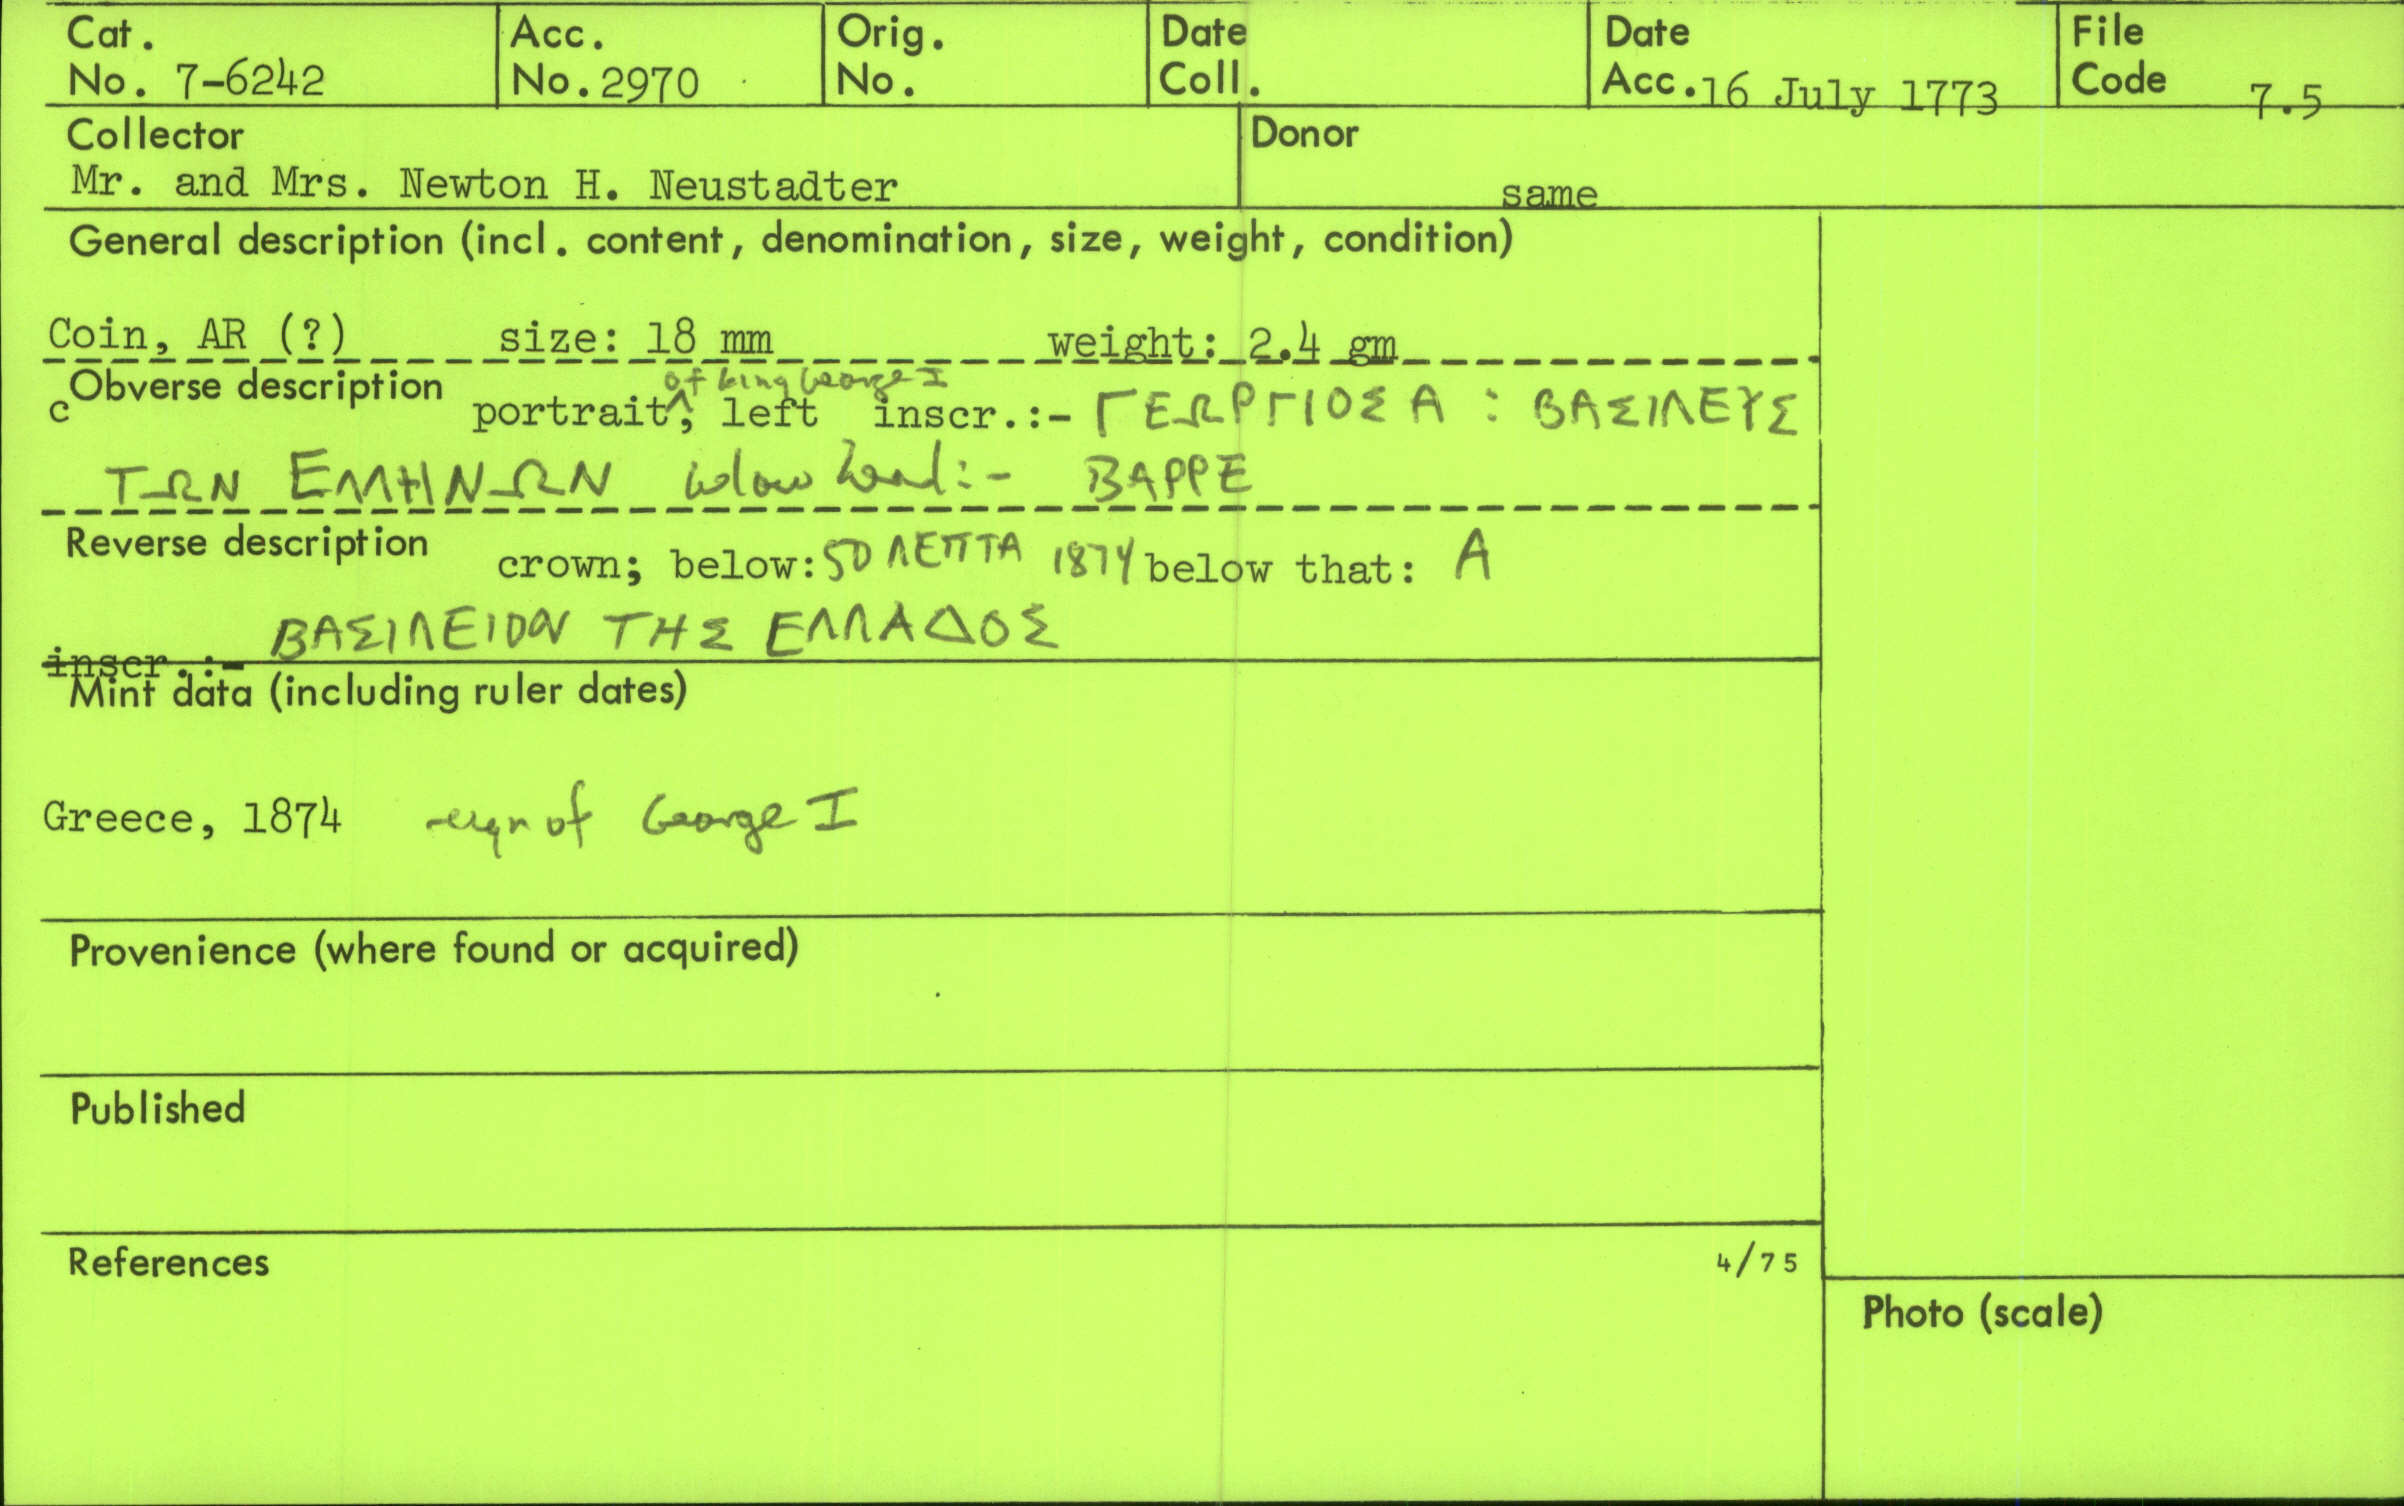 Cat. No. 7-6242
Acc. No. 2970
Orig. No.
Date Coll.
Date Acc. 16 July 1773
File Code 7.5
Collector
Mr. and Mrs. Newton H. Neustadter
Donor
same
General description (incl. content, denomination, size, weight, condition)
Coin, AR (?) size: 18 mm weight: 2.4 gm
Obverse description
c portrait ^of king George I; left inscr.:- ΓΕΩΡΓΙΟΣ Α : ΒΑΣΙΛΕΥΣ
ΤΩΝ ΕΛΛΗΝΩΝ below head:- BAPPE
Reverse description crown; below: 50 ΛΕΠΤΑ 1874 below that: A
inscr.:- ΒΑΣΙΛΕΙΟΝ ΤΗΣ ΕΛΛΑΔΟΣ
Mint data (including ruler dates)
Greece, 1874 reign of George I
Provenience (where found or acquired)
Published
References 4/75
Photo (scale)